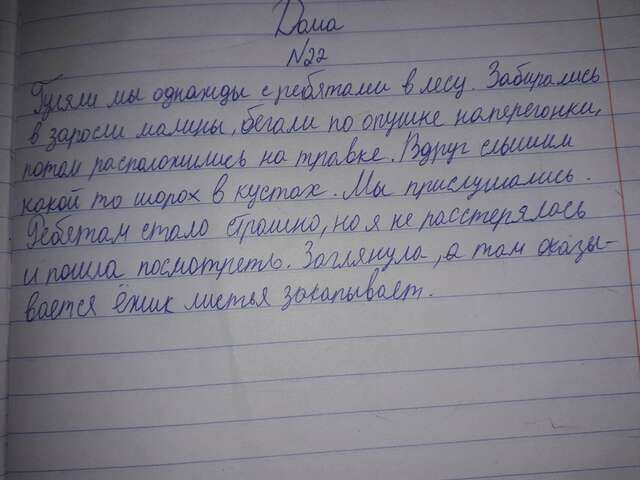 Дома
№22
Гуляли мы однажды с ребятами в лесу. Забирались
в заросли малины, бегали по опушке наперегонки,
потом расположились на травке. Вдруг слышим
какой то шорох в кустах. Мы прислушались.
Ребятам стало страшно, но я не расстерялась
и пошла посмотреть. Заглянула, а там оказы-
вается ёжик листья закапывает.